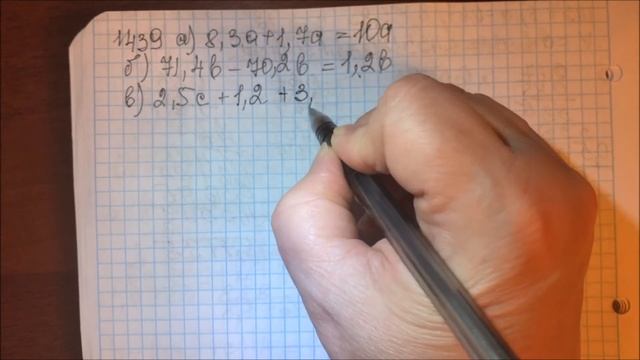 1439 а) 8,3a+1,7a = 10a
б) 71,4b - 70,2b = 1,2b
в) 2,5c + 1,2 + 3,